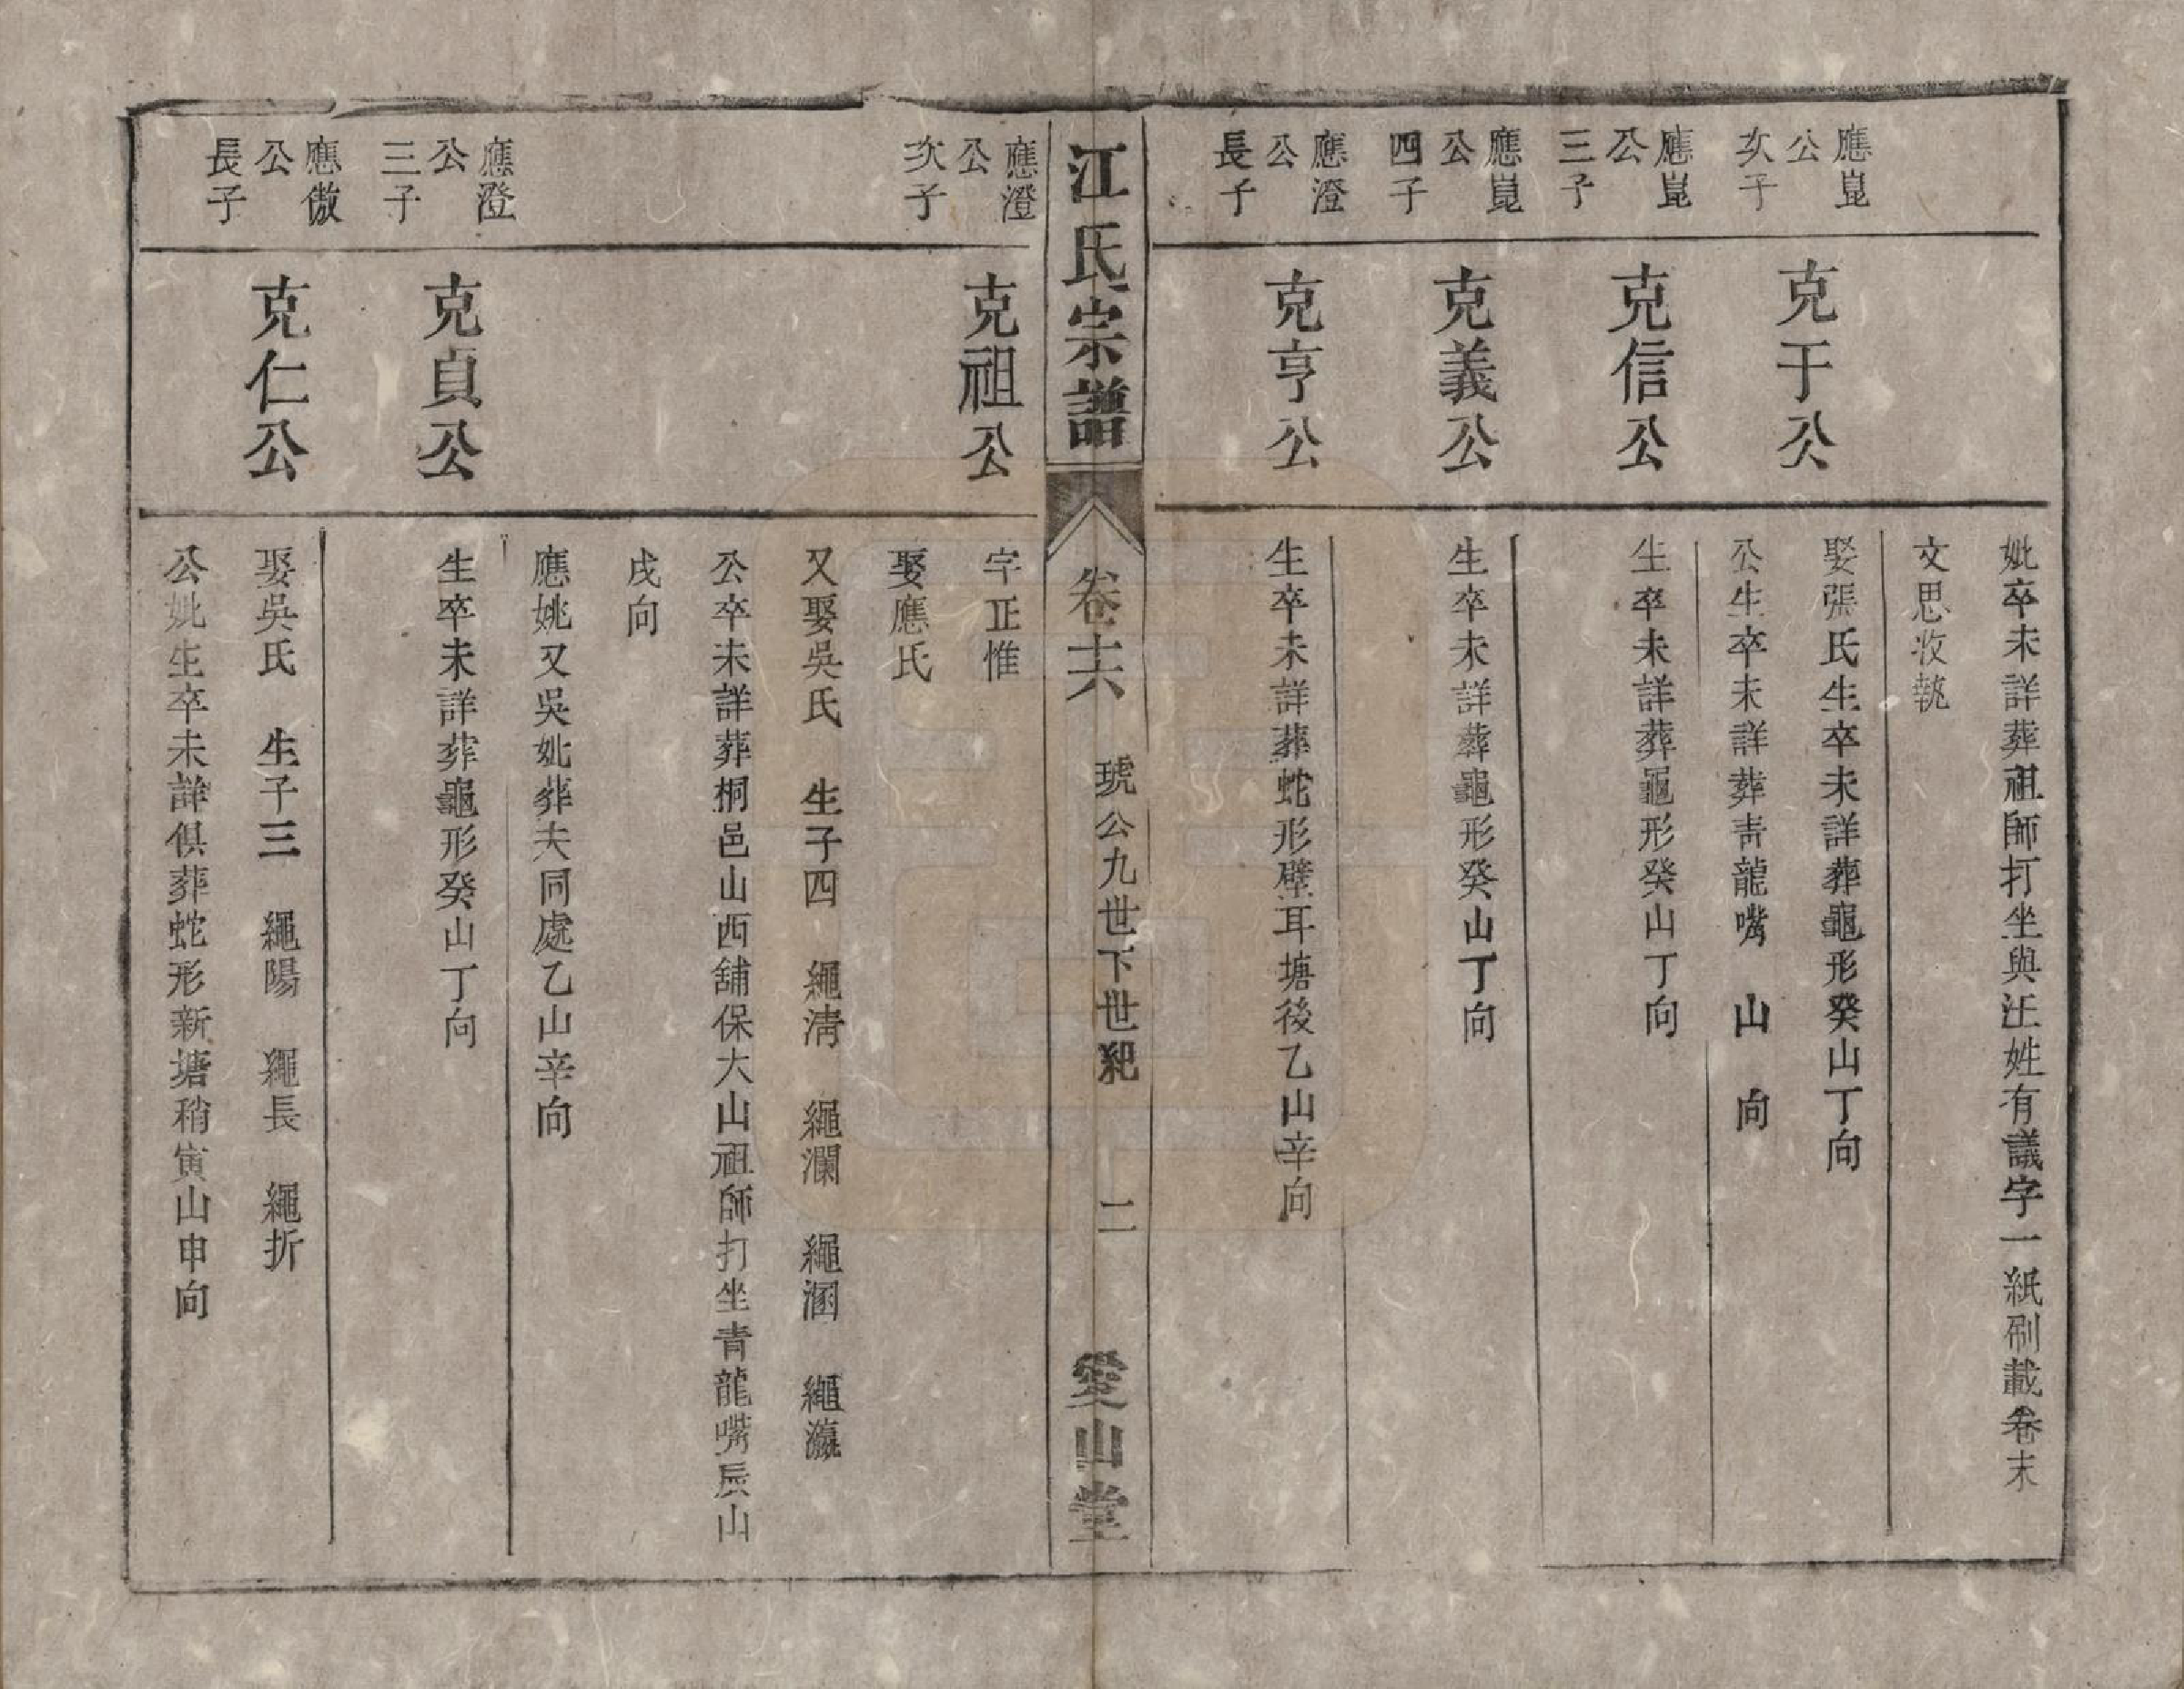 妣卒未詳葬祖師打坐與汪姓有議字一紙刷載卷末
文思收執
應崑公次子
克于公
娶張氏生卒未詳葬龜形癸山丁向
公生卒未詳葬青龍嘴　山　向
應崑公三子
克信公
生卒未詳葬龜形癸山丁向
應崑公四子
克義公
生卒未詳葬龜形癸山丁向
應澄公長子
克亨公
生卒未詳葬蛇形壁耳塘後乙山辛向
江氏宗譜
卷十六
琥公九世下世紀
二
愛山堂
應澄公次子
克祖公
字正惟
娶應氏
又娶吳氏　生子四　繩淸　繩瀾　繩涵　繩瀛
公卒未詳葬桐邑山西舖保大山祖師打坐青龍嘴辰山
戌向
應姚又吳妣葬夫同處乙山辛向
應澄公三子
克貞公
生卒未詳葬龜形癸山丁向
應傲公長子
克仁公
娶吳氏　生子三　繩陽　繩長　繩折
公妣生卒未詳俱葬蛇形新塘稍寅山申向